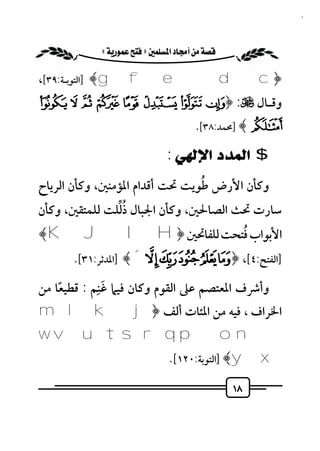 قصة من أمجاد المسلمين « فتح عمورية »
﴿ g f e d c ﴾ [التوبـة:٣٩]،
وقـال ﷺ: ﴿وَإِن تَتَوَلَّوْا۟ يَسْتَبْدِلْ قَوْمًا غَيْرَكُمْ ثُمَّ لَا يَكُونُوٓا۟
أَمْثَـٰلَكُم ﴾ [محمد:٣٨].
$ المدد الإلهي :
وكأن الأرض طُويت تحت أقدام المؤمنين، وكأن الرياح
سارت تحث الصالحين، وكأن الجبال ذُلِّلت للمتقين، وكأن
الأبواب فُتحت للفاتحين ﴿ K J I H ﴾
[الفتح:٤]، ﴿وَمَا يَعْلَمُ جُنُودَ رَبِّكَ إِلَّا ﴾ [المدثر:٣١].
وأشرف المعتصم على القوم وكان فيما غَنِم : قطيعًا من
الخراف ، فيه من المئات ألف ﴿ m l k j
w v u t s r q p o n
y x ﴾ [التوبة:١٢٠].
١٨